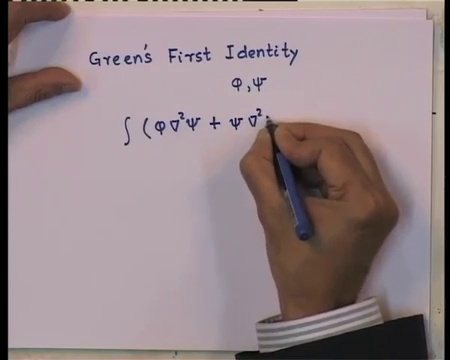 Green's First Identity
φ, ψ
∫ (φ∇²ψ + ψ∇²